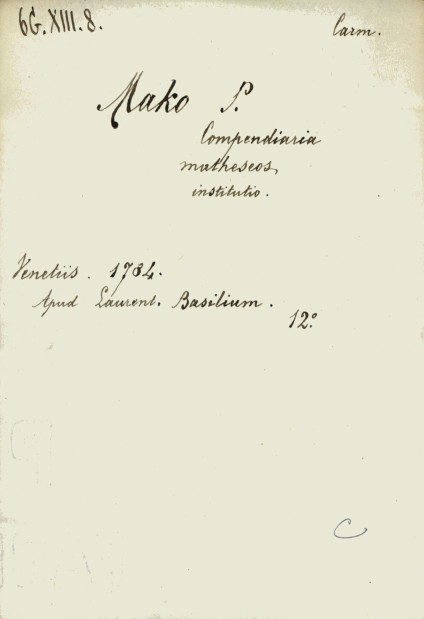 6G.XIII.8.
Carm.
Mako P.
Compendiaria
matheseos
institutio.
Venetiis. 1784.
Apud Laurent. Basilium.
12°
C